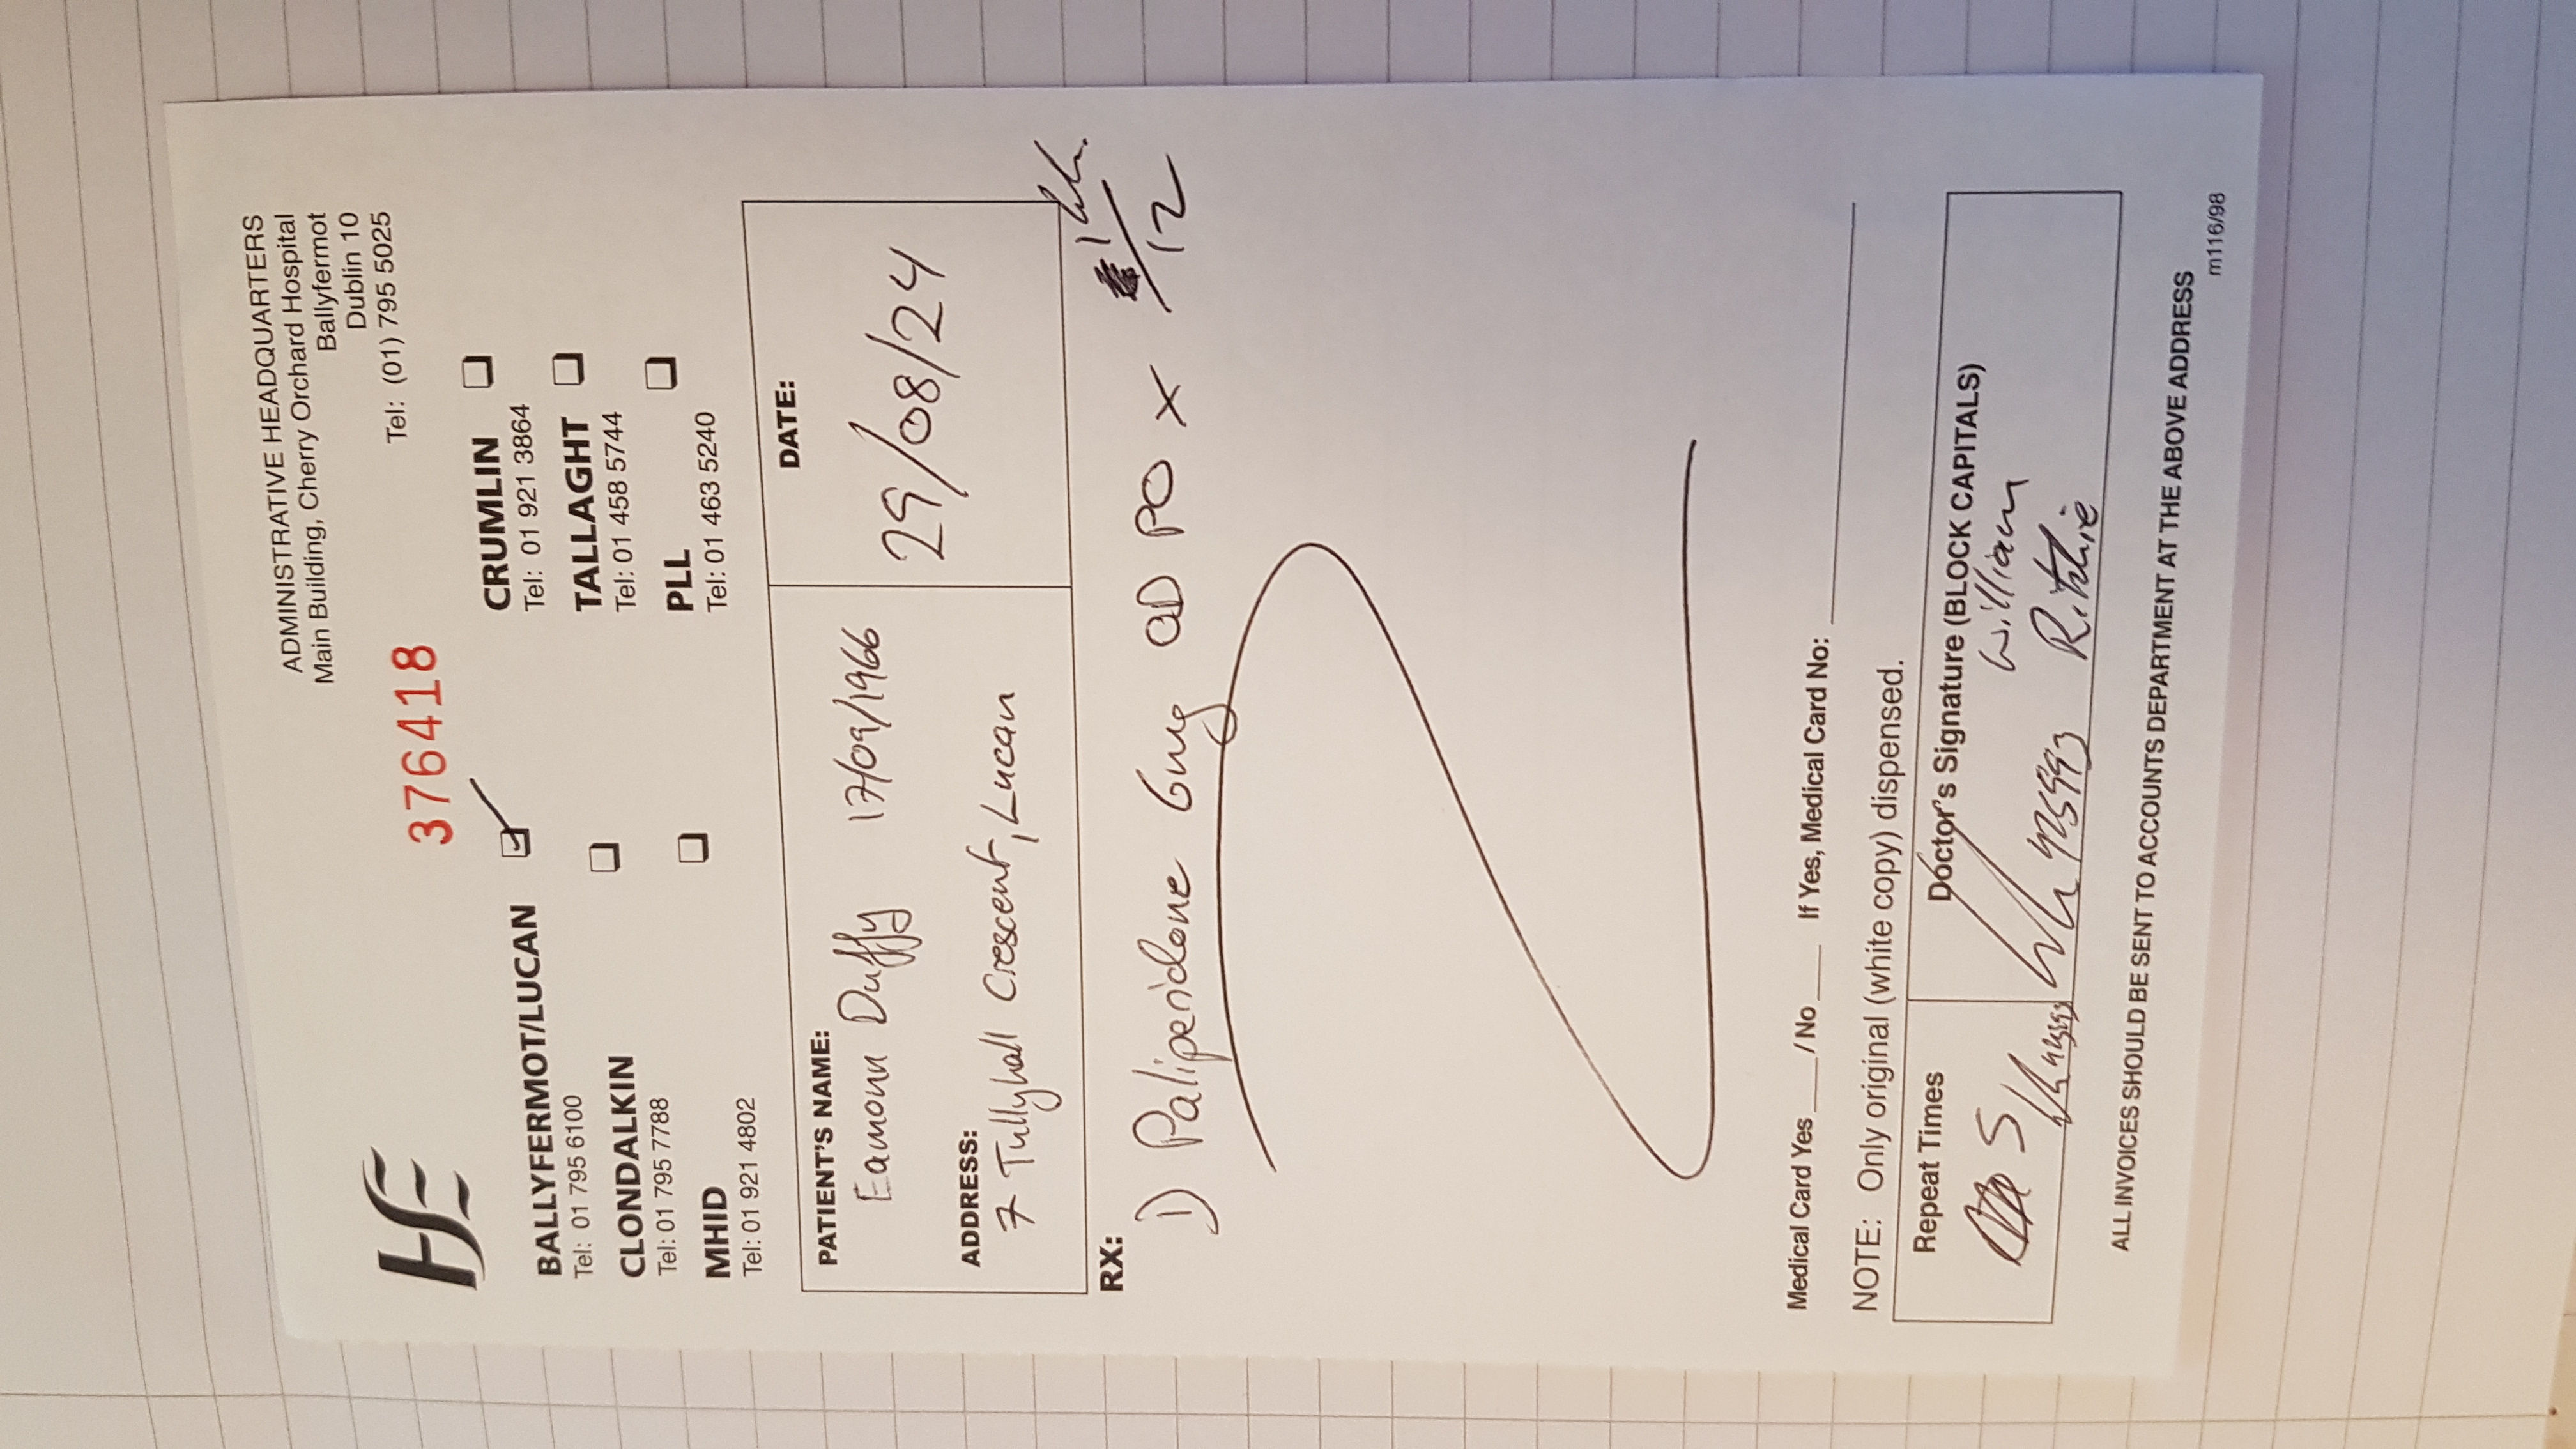 ADMINISTRATIVE HEADQUARTERS
Main Building, Cherry Orchard Hospital
Ballyfermot
Dublin 10
Tel: (01) 795 5025
HSE
376418
BALLYFERMOT/LUCAN
Tel: 01 795 6100
CLONDALKIN
Tel: 01 795 7788
MHID
Tel: 01 921 4802
CRUMLIN
Tel: 01 921 3864
TALLAGHT
Tel: 01 458 5744
PLL
Tel: 01 463 5240
PATIENT'S NAME:
Eamonn Duffy 17/09/1966
ADDRESS:
7 Tullyhall Crescent, Lucan
DATE:
29/08/24
RX:
1) Paliperidone 6mg OD PO x 1/12
Medical Card Yes ____ / No ____ If Yes, Medical Card No:
NOTE: Only original (white copy) dispensed.
Repeat Times
5
Doctor's Signature (BLOCK CAPITALS)
425993 William
Ritchie
ALL INVOICES SHOULD BE SENT TO ACCOUNTS DEPARTMENT AT THE ABOVE ADDRESS
m116/98